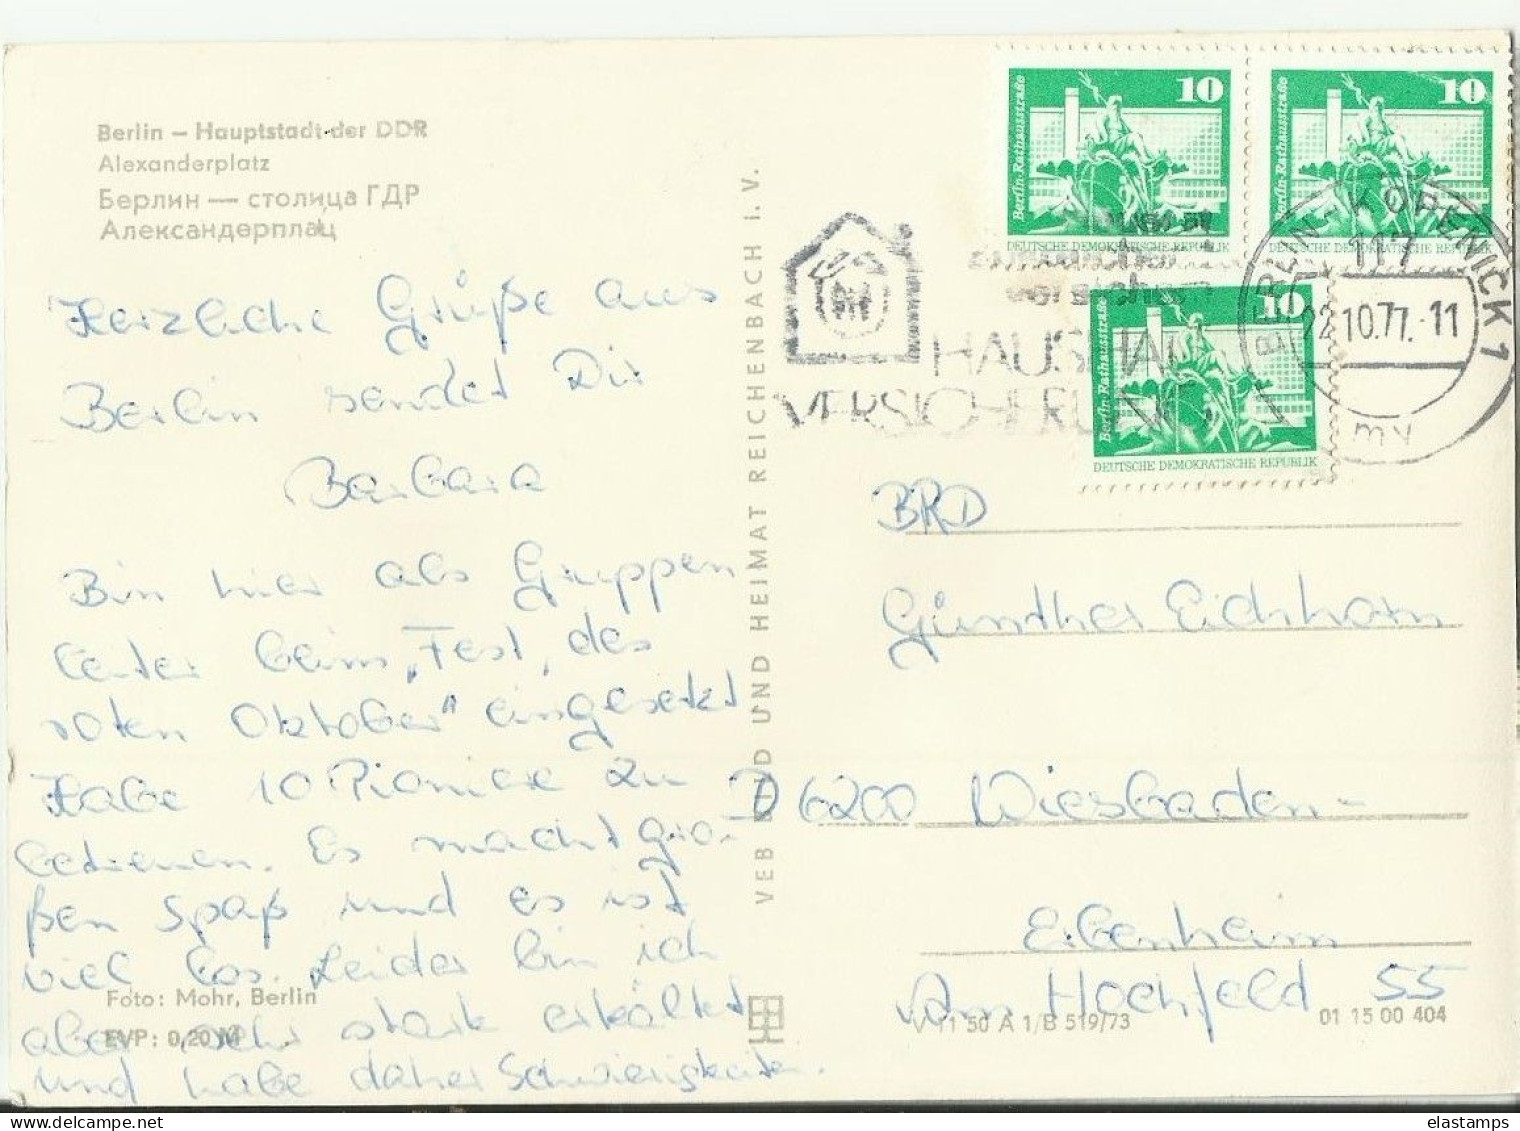 Berlin – Hauptstadt der DDR
Alexanderplatz
Берлин — столица ГДР
Александерплац
Herzliche Grüße aus
Berlin sendet Dir
Barbara
Bin hier als Gruppen
leiter beim „Fest, des
roten Oktober" eingesetzt
Habe 10 Pioniere zu
betreuen. Es macht gro-
ßen Spaß und es ist
viel los. Leider bin ich
aber sehr stark erkältet
und habe daher Schwierigkeiten.
Foto: Mohr, Berlin
EVP: 0,20 M
VEB BILD UND HEIMAT REICHENBACH I. V.
10
Berlin-Rathausstraße
DEUTSCHE DEMOKRATISCHE REPUBLIK
10
Berlin-Rathausstraße
DEUTSCHE DEMOKRATISCHE REPUBLIK
10
Berlin-Rathausstraße
DEUTSCHE DEMOKRATISCHE REPUBLIK
HAUSHALT
VERSICHERUNG
BERLIN-KÖPENICK 1
117
22.10.77.-11
my
BRD
Günther Eichhorn
D 6200 Wiesbaden-
Erbenheim
Am Hochfeld 55
V 11 50 A 1/B 519/73
01 15 00 404
elastamps